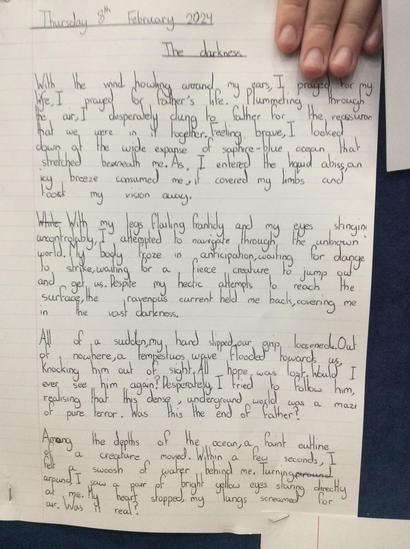 Thursday 8th February 2024
The darkness
With the wind howling around my ears, I prayed for my
life, I prayed for father's life. Plummeting through
the air, I desperately clung to father for the reassuran
that we were in it together. Feeling brave, I looked
down at the wide expanse of saphire-blue ocean that
stretched beneath me. As I entered the liquid abiss, an
icy breeze consumed me, it covered my limbs and
took my vision away.
With my legs flailing frantidly and my eyes stinging
uncontrolably, I attempted to navigate through the unknown
world. My body froze in anticipation, waiting for danger
to strike, waiting for a fierce creature to jump out
and get us. Despite my hectic attempts to reach the
surface, the ravenous current held me back, covering me
in the vast darkness.
All of a sudden, my hand slipped, our grip loosened. Out
of nowhere, a tempestuos wave flooded towards us,
knocking him out of sight. All hope was lost. Would I
ever see him again? Desperately, I tried to follow him,
realising that this dense, underground world was a maze
of pure terror. Was this the end of father?
Among the depths of the ocean, a faint outline
of a creature moved. Within a few seconds, I
felt a swoosh of water behind me. Turning
around, I saw a pair of bright yellow eyes staring directly
at me. My heart stopped, my lungs screamed for
air. Was it real?